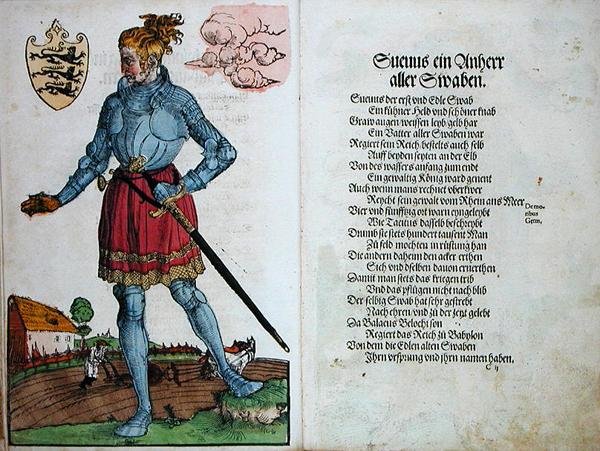 Sueuus ein Anherr
aller Swaben.
Sueuus der erst vnd Edle Swab
Ein kühner Held vnd schöner knab
Graw augen weissen leyb gelb har
Ein Vatter aller Swaben war
Regiert sein Reich bestelts auch selb
Auff beyden seyten an der Elb
Von des wassers anfang zum ende
Ein gewaltig König ward genent
Auch wenn mans rechnet vberzwer
Reycht sein gewalt vom Rhein ans Meer
Demo-
ribus
Germ.
Vier vnd fünfftzig ort warn eyngeleybt
Wie Tacitus dasselb bescheybt
Drumb sie stets hundert tausent Man
Zů feld mochten in rüstung han
Die andern daheim den acker erihen
Sich vnd dselben dauon ernerthen
Damit man stets das kriegen trib
Vnd das pflügen nicht nach blib
Der selbig Swab hat sehr gestrebt
Nach ehren vnd zů der zeyt gelebt
Da Balaeus Belochi son
Regiert das Reich zů Babylon
Von dem die Edlen alten Swaben
Ihrn vrsprung vnd jhrn namen haben.
C ij